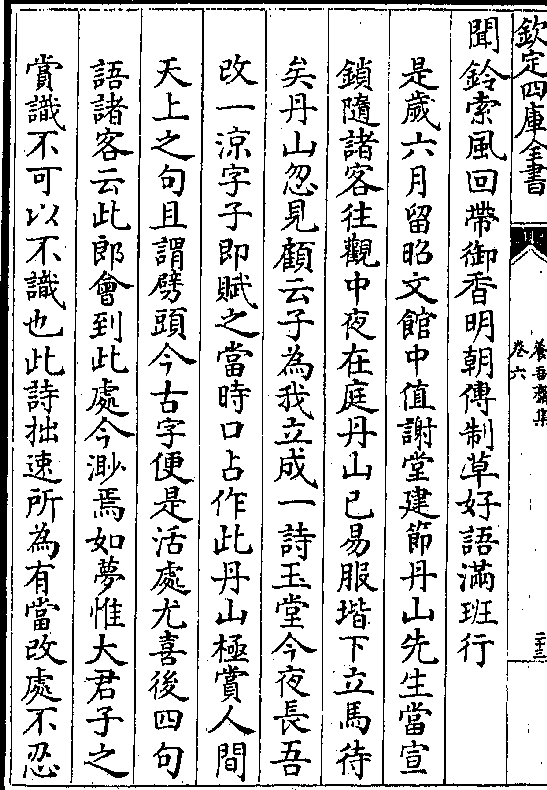 欽定四庫全書
養吾齋集
卷六
二十三
聞鈴索風回帶御香明朝傳制草好語滿班行
是歲六月留昭文館中值謝堂建節丹山先生當宣
鎖隨諸客往觀中夜在庭丹山已易服堦下立馬待
矣丹山忽見顧云子為我立成一詩玉堂今夜長吾
改一涼字子即賦之當時口占作此丹山極賞人間
天上之句且謂劈頭今古字便是活處尤喜後四句
語諸客云此郎會到此處今渺焉如夢惟大君子之
賞識不可以不識也此詩拙速所為有當改處不忍